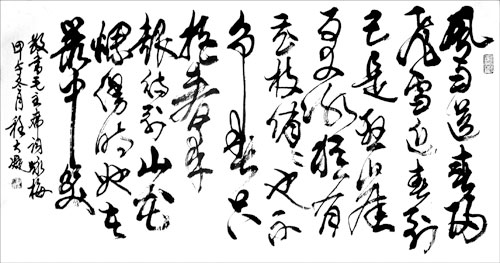 風雨送春歸
飛雪迎春到
已是懸崖
百丈冰猶有
花枝俏〻也不
爭春只
把春來
報待到山花
爛漫時她在
叢中笑
敬書毛主席詞詠梅
甲午冬月